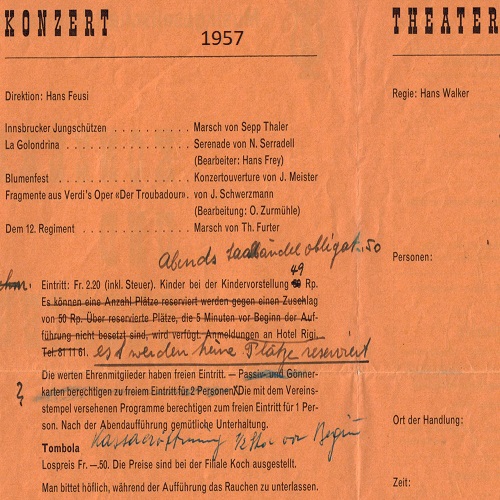 KONZERT
1957
THEATER
Direktion: Hans Feusi
Regie: Hans Walker
Innsbrucker Jungschützen . . . . . . . . . . Marsch von Sepp Thaler
La Golondrina . . . . . . . . . . . . . . . . . Serenade von N. Serradell
(Bearbeiter: Hans Frey)
Blumenfest . . . . . . . . . . . . . . . . . Konzertouverture von J. Meister
Fragmente aus Verdi's Oper «Der Troubadour». von J. Schwerzmann
(Bearbeitung: O. Zurmühle)
Dem 12. Regiment . . . . . . . . . . . . . . Marsch von Th. Furter
abends obligat. 50
Personen:
49
Eintritt: Fr. 2.20 (inkl. Steuer). Kinder bei der Kindervorstellung Rp.
Es können eine Anzahl Plätze reserviert werden gegen einen Zuschlag
von 50 Rp. Über reservierte Plätze, die 5 Minuten vor Beginn der Auf-
führung nicht besetzt sind, wird verfügt. Anmeldungen an Hotel Rigi,
Tel. 81 11 61. es werden keine Plätze reserviert
Die werten Ehrenmitglieder haben freien Eintritt. – Passiv- und Gönner-
karten berechtigen zu freiem Eintritt für 2 Personen. Die mit dem Vereins-
stempel versehenen Programme berechtigen zum freien Eintritt für 1 Per-
son. Nach der Abendaufführung gemütliche Unterhaltung.
Ort der Handlung:
Kassaeröffnung vor Beginn
Tombola
Lospreis Fr. –.50. Die Preise sind bei der Filiale Koch ausgestellt.
Man bittet höflich, während der Aufführung das Rauchen zu unterlassen.
Zeit: